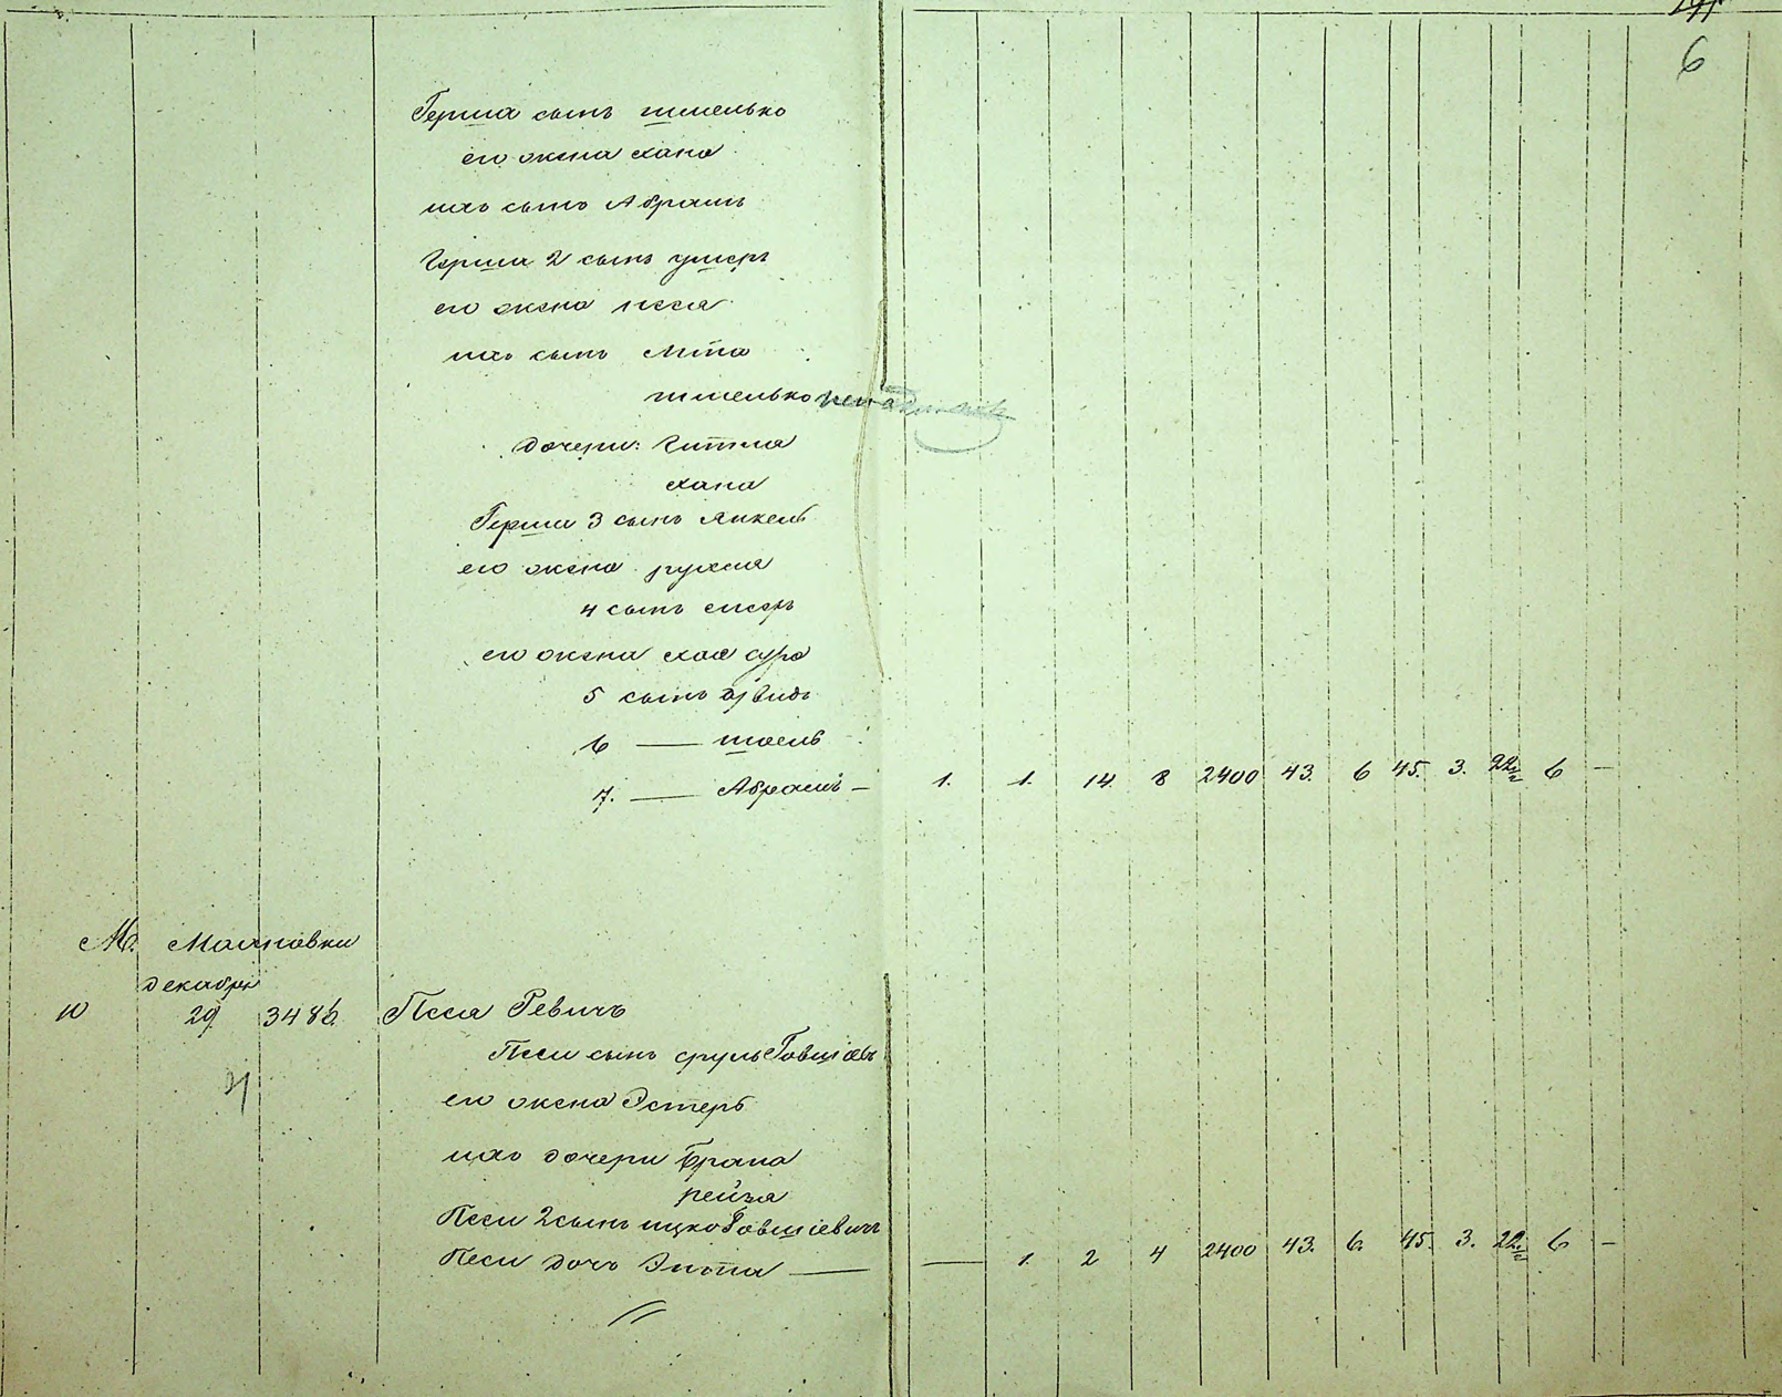 6
Герша сынъ Шмелько
его жена Хана
ихъ сынъ Абрамъ
Герши 2 сынъ
его жена Песя
ихъ сынъ
Шмелько
дочери: Гитля
Хана
Герши 3 сынъ Янкель
его жена Рухля
4 сынъ
его жена Хая Сура
5 сынъ Давидъ
6 —
7. — Абрамъ — 1. 1. 14 8 2400 43. 6 45. 3. 22½ 6 —
М. Маяновки
декабря
10 29 3486. Песя Ревичъ
Песи сынъ Сруль
его жена Эстеръ
ихъ дочери Брана
Рейза
Песи 2 сынъ Ицко
Песи дочь — — 1. 2 4 2400 43. 6. 45. 3. 22½ 6 —